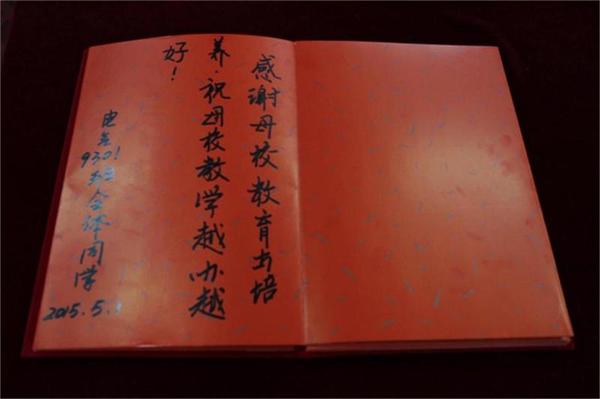 感谢母校教育与培
养·祝母校教学越办越
好！
电气9301班全体同学
2015.5.3